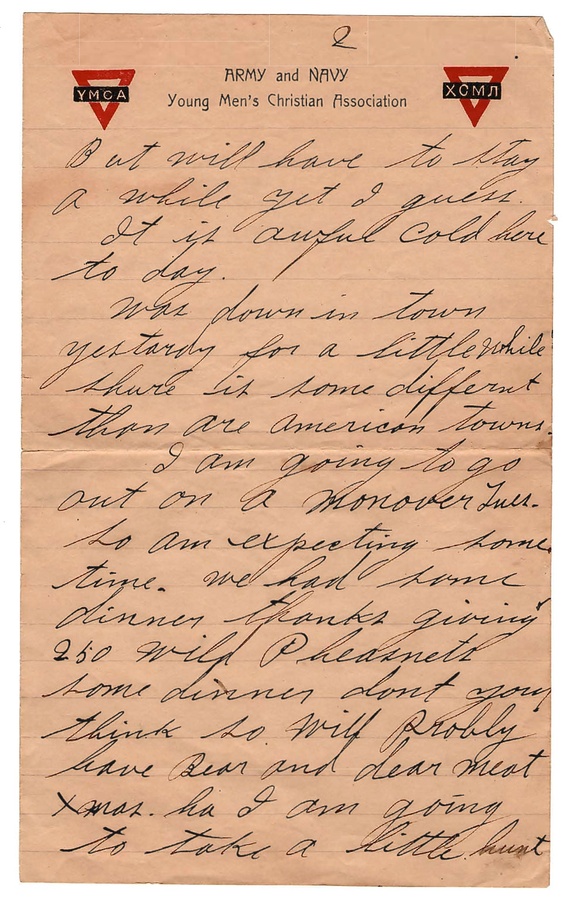 2
ARMY and NAVY
Young Men's Christian Association
YMCA
ХСМЛ
But will have to stay
a while yet I guess.
It is awful cold here
to day.
was down in town
yestardy for a little while
shure is some differnt
than are american towns.
I am going to go
out on a monover Tues.
so am expecting some
time. we had some
dinner thanks giving
250 Wild Pheasnets
some dinner dont you
think so. Will probly
have Bear and dear meat
Xmas. ha I am going
to take a little hunt